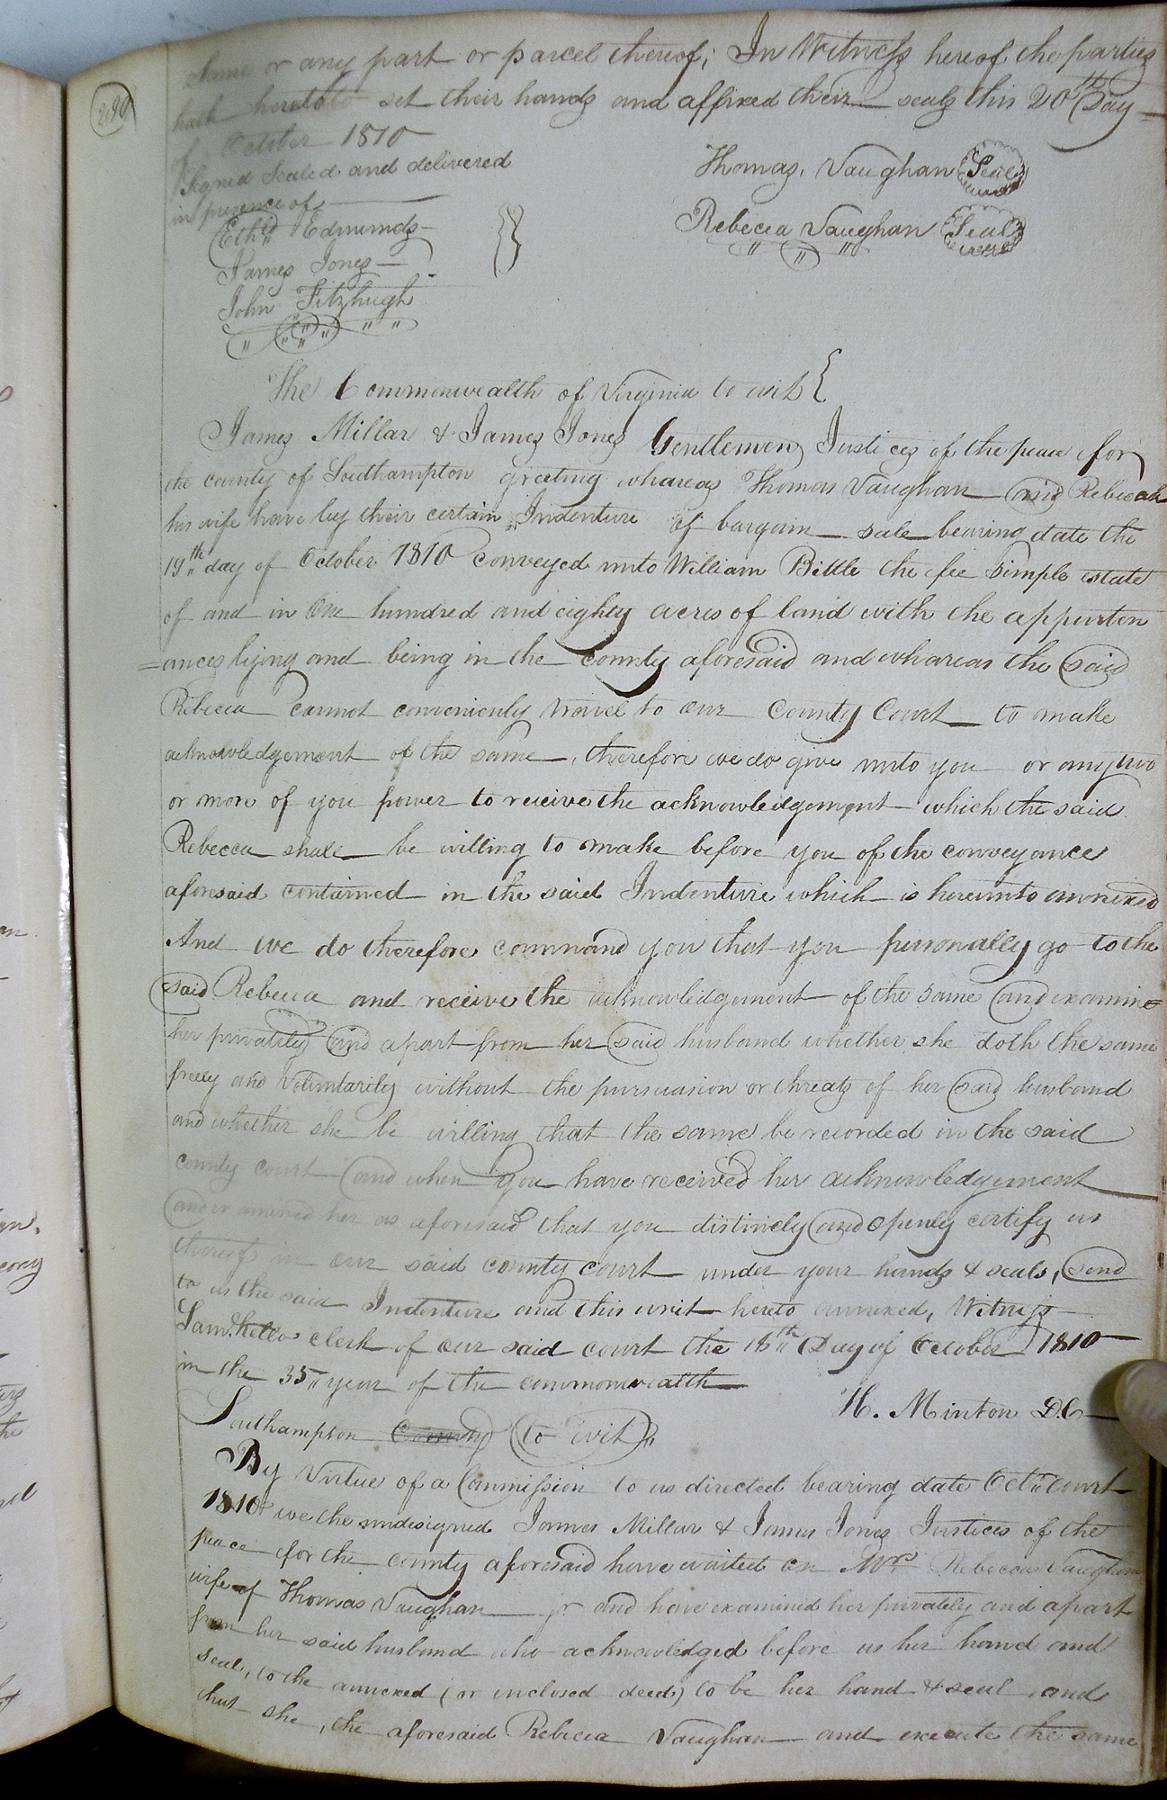 290
same or any part or parcel thereof; In Witness hereof the parties
hath hereto set their hands and affixed their seals this 20th Day
of October 1810
Signed Sealed and delivered
in presence of
Ethd Edmunds
James Jones
John Fitzhugh
Thomas, Vaughan Seal
Rebecca Vaughan Seal
The Commonwealth of Virginia to wit
James Millar & James Jones Gentlemen, Justices of the peace for
the county of Southampton greeting whareas Thomas Vaughan and Rebecah
his wife have by their certain Indenture of bargain sale bearing date the
19th day of October 1810 conveyed unto William Bittle the fee Simple estate
of and in One hundred and eighty acres of land with the appurten
=ances lying and being in the county aforesaid and whareas the said
Rebecca cannot conveniently travel to our County Court to make
acknowledgement of the same, therefore we do give unto you or any two
or more of you power to receive the acknowledgement which the said
Rebecca shall be willing to make before you of the conveyance
aforesaid contained in the said Indenture which is hereunto annexed
And we do therefore command you that you personally go to the
said Rebecca and receive the acknowledgement of the same and examine
her privately and apart from her said husband whether she doth the same
freely and voluntarily without the pursuasion or threats of her said husband
and whether she be willing that the same be recorded in the said
county court and when you have received her acknowledgement
and examined her as aforesaid that you distinctly and openly certify us
thereof in our said county court under your hands & seals, send
to us the said Indenture and this writ hereto annexed, Witness
Saml Kello clerk of our said court the 18th Day of October 1810
in the 35 year of the commonwealth
H. Minton D.C
Southampton County to wit
By Virtue of a Commission to us directed bearing date Octr court
1810 we the undesigned James Millar & James Jones Justices of the
peace for the county aforesaid have waited on Mrs Rebecca Vaughan
wife of Thomas Vaughan jr and have examined her privately and apart
from her said husband who acknowledged before us her hand and
seal, to the annexed (or inclosed deed) to be her hand & seal, and
that she, the aforesaid Rebecca Vaughan and execute the same